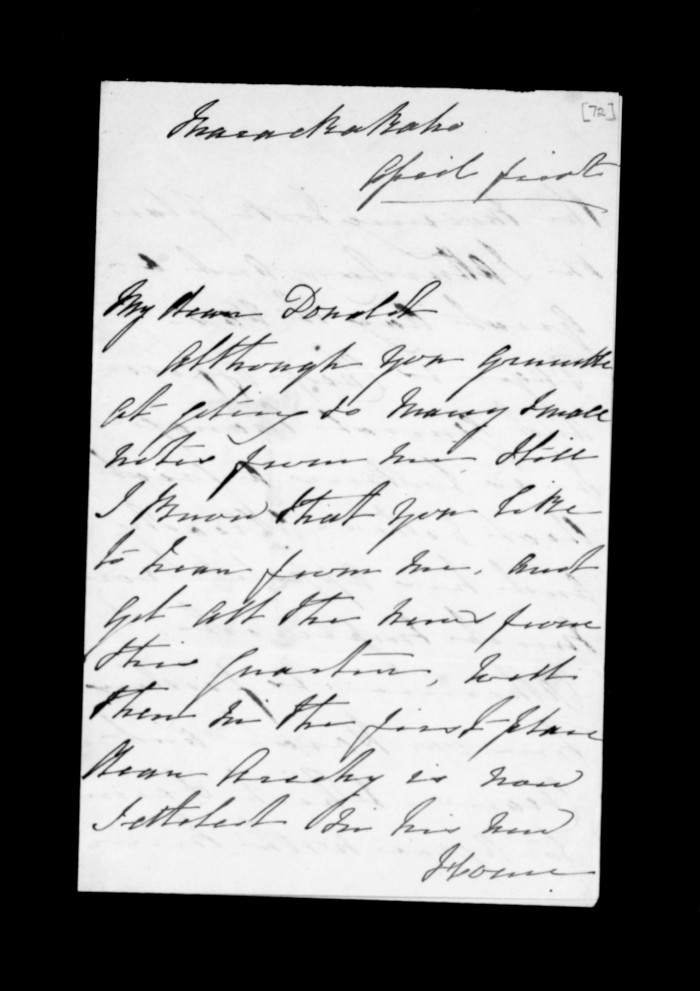 [72]
Maraekakaho
April first
My dear Donald
Although you grumble
at geting so many small
notes from me still
I know that you like
to hear from me. and
get all the news from
this quarter, well
then in the first place
dear Archy is now
setteled in his new
Home